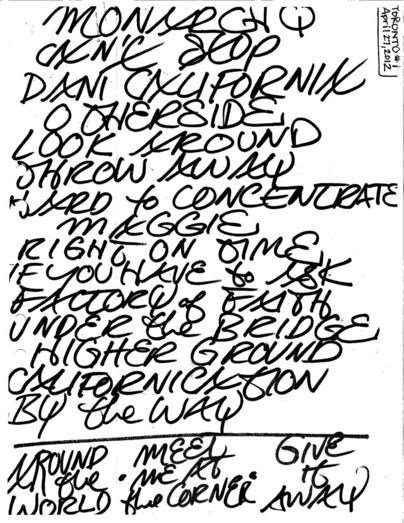 TORONTO #1
April 27, 2012
MONARCHY
CAN'T STOP
DANI CALIFORNIA
OTHERSIDE
LOOK AROUND
THROW AWAY
HARD to CONCENTRATE
MAGGIE
RIGHT ON TIME
IF YOU HAVE to ASK
FACTORY of FAITH
UNDER the BRIDGE
HIGHER GROUND
CALIFORNICATION
BY the WAY
AROUND the WORLD
MEET ME AT the CORNER
GIVE It AWAY